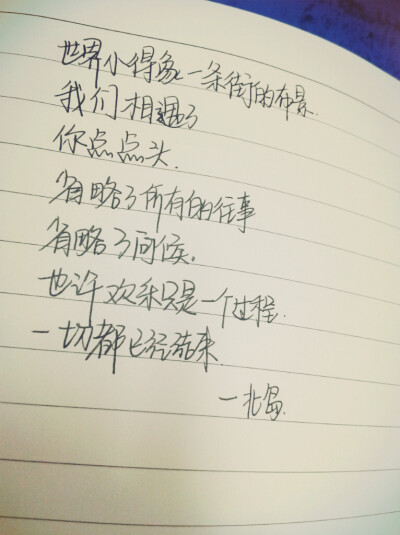 世界小得象一条街的布景.
我们相遇了
你点点头.
省略了所有的往事
省略了问候.
也许欢乐只是一个过程.
一切都已经结束.
一北岛.